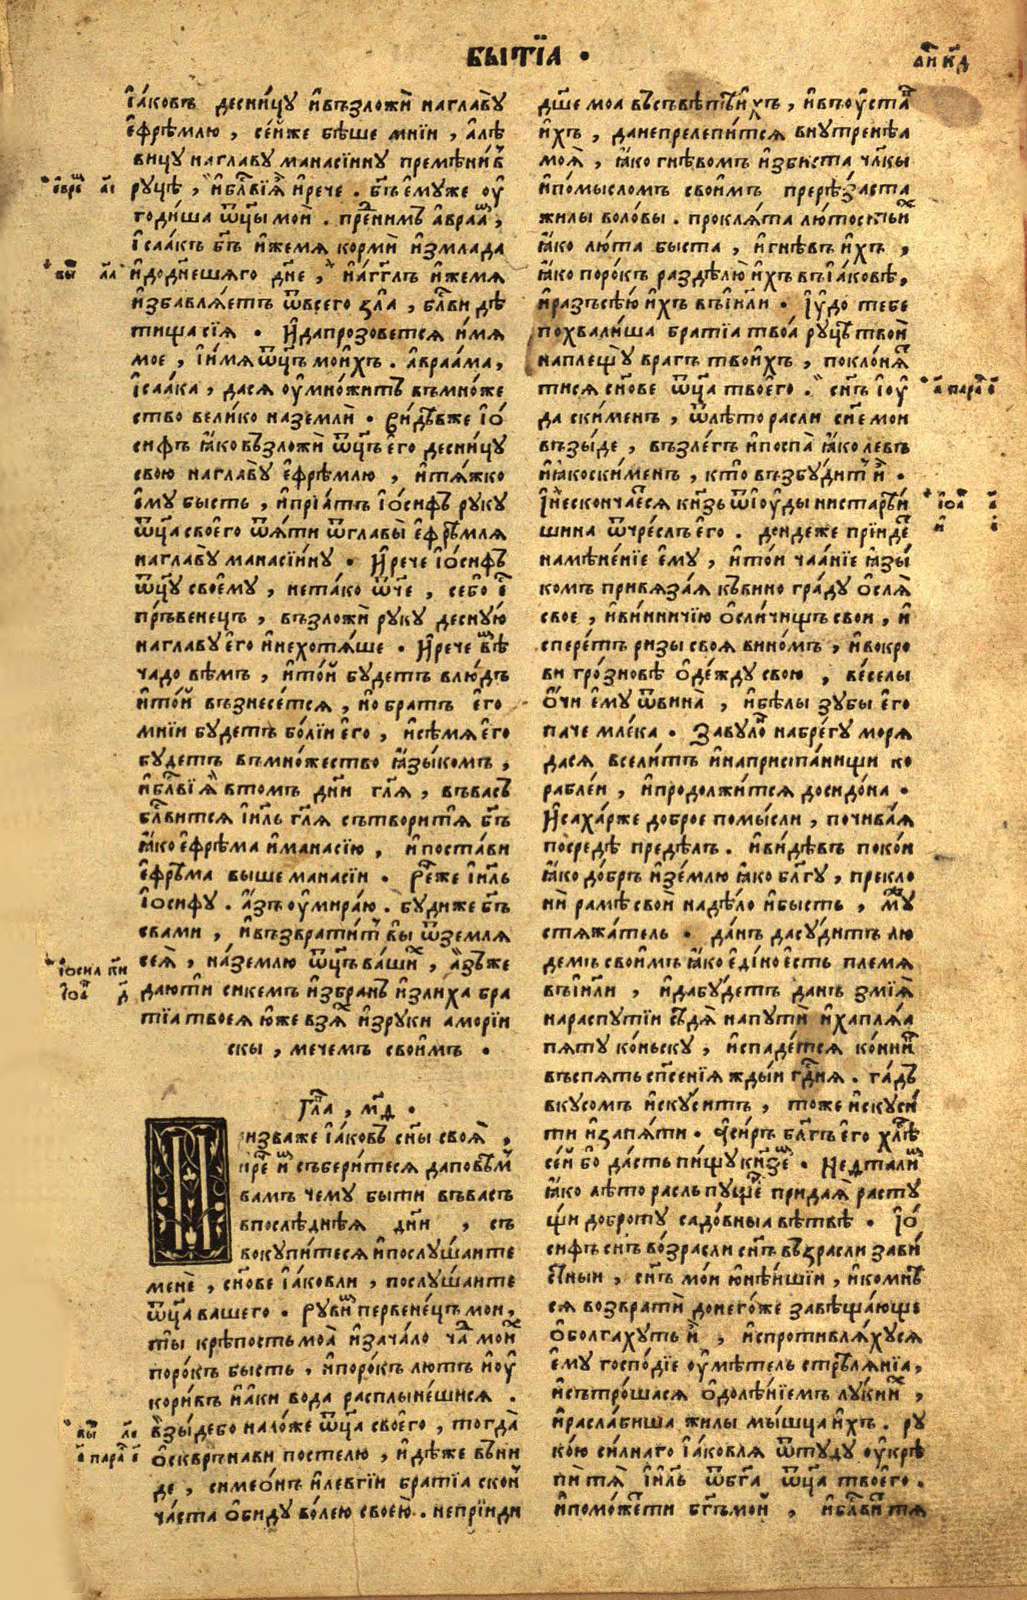 БЫТЇА ·
і҆а́ковъ десни́цу и҆възложи̏ наглавꙋ̀
є҆фре́млю , се́йже бѣ́ше мні́и , а҆лѣ́
вицу наглавꙋ̀ манасі́ину премѣни́въ
рꙋцѣ , и҆блⷭ҇ви́ѧ и҆рече . бг҃ъ є҆мꙋже оу҆
годи́ша ѿц҃ы мои̏ . преⷣнимъ а҆враам ,
і҆саакъ бг҃ъ и҆жемѧ корми̏ и҆змлада
и҆додн҃ешѧго дн҃е , и҆а҆гг҃лъ и҆жемѧ
и҆збавлѧетъ ѿвсего ѕла̀ , блⷭ҇ви дѣ
тища сїѧ · И҆дапрозоветсѧ и҆мѧ
мое , і҆и҆мѧ ѿц҃ъ мои́хъ . а҆враа́ма ,
і҆саа́ка , дасѧ оу҆мно́житъ въмно́же
ство вели́ко наземли̏ · Ви́дѣвже і҆о́
сифъ ꙗ҆ко възложи̏ ѿц҃ъ є҆го десни́цу
свою наглавꙋ є҆фре́млю , и҆тѧ́жко
є҆мꙋ бысть , и҆прїа́тъ і҆о́сифъ рꙋкꙋ
ѿц҃а свое҆го ѿѧти ѿглавы̀ є҆фре́млѧ
наглавꙋ манасі́инꙋ · И҆рече і҆о́сифъ
ѿц҃ꙋ свое҆мꙋ , нета́ко ѿ҆ч҃е , себо є҆
пръвенецъ , възложи̏ рꙋкꙋ деснꙋ́ю
наглавꙋ є҆го и҆нехотѧ́ше · И҆рече вѣ
чадо вѣмъ , и҆то́й бꙋдетъ влю́дъ
и҆то́й възнесе́тсѧ , но братъ є҆го
мні́и бꙋдетъ бо́лїи є҆го , и҆сѣ́мѧ є҆го
бꙋдетъ вмно́жество ꙗ҆зы́комъ ,
и҆блⷭ҇вї ѧ̀ втомъ дн҃и гл҃ѧ , въвасъ
блⷭ҇витсѧ і҆и҃ль гл҃ѧ сътворитѧ бг҃ъ
ꙗ҆ко є҆фре́ма и҆манасі́ю , и҆постави
є҆фрѣма выше манасі́и · Реⷱ҇же і҆и҃ль
і҆о́сифꙋ . а҆́зъ оу҆мира́ю . бꙋдиже бг҃ъ
свами , и҆възвратитъ вы ѿземлѧ
сеѧ̀ , на́землю ѿц҃ъ ва́ши , а҆́зъже
даю́ти сикемъ и҆збранъ и҆злиха бра
тїа твоеѧ ю҆же взѧ и҆зрꙋки амо́рїи
скы , мечемъ свои҆мъ ·
Глⷡ҇а , м҃д ·
Призваже і҆а́ковъ сн҃ы своѧ̀ ,
и҆реⷱ҇ и҆ събери́тесѧ даповѣм
вамъ чемꙋ быти въвасъ
впослѣ́днѧѧ дн҃и , съ
вокꙋпи́тесѧ и҆послꙋ́шаите
мене , сн҃ове і҆а́ковли , послꙋ́шаите
ѿц҃а вашего · Рꙋви́ первене́цъ мои ,
ты крѣ́постьмоа̀ и҆зача́ло ча мои
поро́къ бысть , и҆поро́къ лютъ и҆оу҆
кори́въ и҆а҆́ки вода расплыне́шисѧ .
Взы́дебо нало́же ѿц҃а свое҆го , тогда̀
о҆сквръ́нави постелю , и҆дѣ́же въни
де , симео́нъ и҆левгі́и братїа скон
ча́ста о҆биду во́лею своею̀ . непрїиди
дш҃е моа въсъвѣ́тъ и҆хъ , и҆въоу҆ста
и҆хъ , данепрелепи́тсѧ внꙋтрене́а
моѧ̀ , ꙗ҆ко гнѣвомъ и҆збиста чл҃кы
и҆по́мысломъ свои҆мъ прерѣ́заста
жилы воловы . проклѧ́та лю́тость и҆
ꙗ҆ко лю́та быста , и҆гнѣ́въ и҆хъ ,
ꙗ҆ко порокъ раздѣлю̀ и҆хъ въі҆а́ковѣ ,
и҆разъсѣ́ю и҆хъ въі҆и҃ли · І҆ю́до тебе
похвали́ша братїа твоа́ рꙋцѣ твои
наплещꙋ врагъ твои́хъ , поклонѧ́
тисѧ сн҃ове ѿц҃а твое́го . сн҃ъ і҆оу
да скименъ , ѿлѣ́то расли сн҃е мои
възы́де , възле́гъ и҆поспа ꙗ҆ко левъ
и҆ꙗкоски́менъ , кто̀ възбꙋ́дитъ и҆ ·
И҆нескончаетсѧ кнѧⷥь ѿі҆оу҆ды нистарѣи
шина ѿчре́слъ є҆го . до́ндеже прїидет
намѣне́нїе є҆мꙋ , и҆то́и чаа́нїе ꙗ҆зы́
комъ привѧзаѧ къви́но гра́дꙋ о҆слѧ̀
свое , и҆ви́нничїю о҆сли́чищъ свои , и҆
спере́тъ ризы своѧ вино́мъ , и҆вокро
ви гро́зновѣ о҆де́ждꙋ свою , ве́селы
о҆чи є҆мꙋ ѿвина̀ , и҆бѣ́лы зꙋбы є҆го
паче мле́ка · Завꙋло набре́гꙋ морѧ
дасѧ вселитъ и҆наприста́нищи ко
рабле́и , и҆продолжи́тсѧ досидо́на ·
И҆саха́рже доброе помы́сли , почива́ѧ
посредѣ̀ предѣ́лъ . и҆ви́дѣвъ поко́и
ꙗ҆ко до́бръ и҆зе́млю ꙗ҆ко бл҃гꙋ , прекло
ни̏ рамѣ̀ свои надѣ́ло и҆бысть , мꙋ
стѧжа́тель · да́нъ дасꙋ́дитъ лю
демъ свои́мъ ꙗ҆ко є҆ди́но е҆сть племѧ
въі҆и҃ли , и҆дабꙋдетъ данъ змі́ѧ
нараспꙋтїи сѣдѧ̀ напꙋти̏ и҆хаплѧ́а
пѧтꙋ ко́ньскꙋ , и҆спаде́тсѧ ко́нни
въспѧть сп҃сенїѧ жды́и гдⷭ҇нѧ . га́дъ
вкꙋсомъ и҆скꙋ́ситъ , тоже и҆скꙋси́
ти и҆запѧ́ти · А҆си́ръ бл҃гъ є҆го хлѣ
се́и бо да́сть пи́щꙋ кнѧзе · Нефтали
ꙗ҆ко лѣ́то расль пꙋще прида́ѧ расту
щи добротꙋ садо́вныа вѣ́твѣ · І҆о́
сифъ сн҃ъ во́зрасли сн҃ъ възрасли зави́
стныи , сн҃ъ мо́и ю҆нѣ́ишїи , и҆комнѣ
сѧ возврати̏ донего́же завѣща́юще
о҆болгахꙋть и҆ , и҆спротивлѧ́хꙋсѧ
є҆мꙋ госпо́дїе оу҆мѣ́тель стрѣ́лѧнїа ,
и҆сътро́шасѧ о҆долѣ́нїемъ лꙋкии ,
и҆расла́биша жилы мы́шца и҆хъ . рꙋ
ко́ю си́лнаго і҆а́ковлѧ ѿтꙋдꙋ оу҆крѣ
пи́тѧ і҆и҃ль ѿбг҃а ѿц҃а твое́го .
и҆помо́жетти бг҃ъмои , и҆блⷭ҇ви тѧ